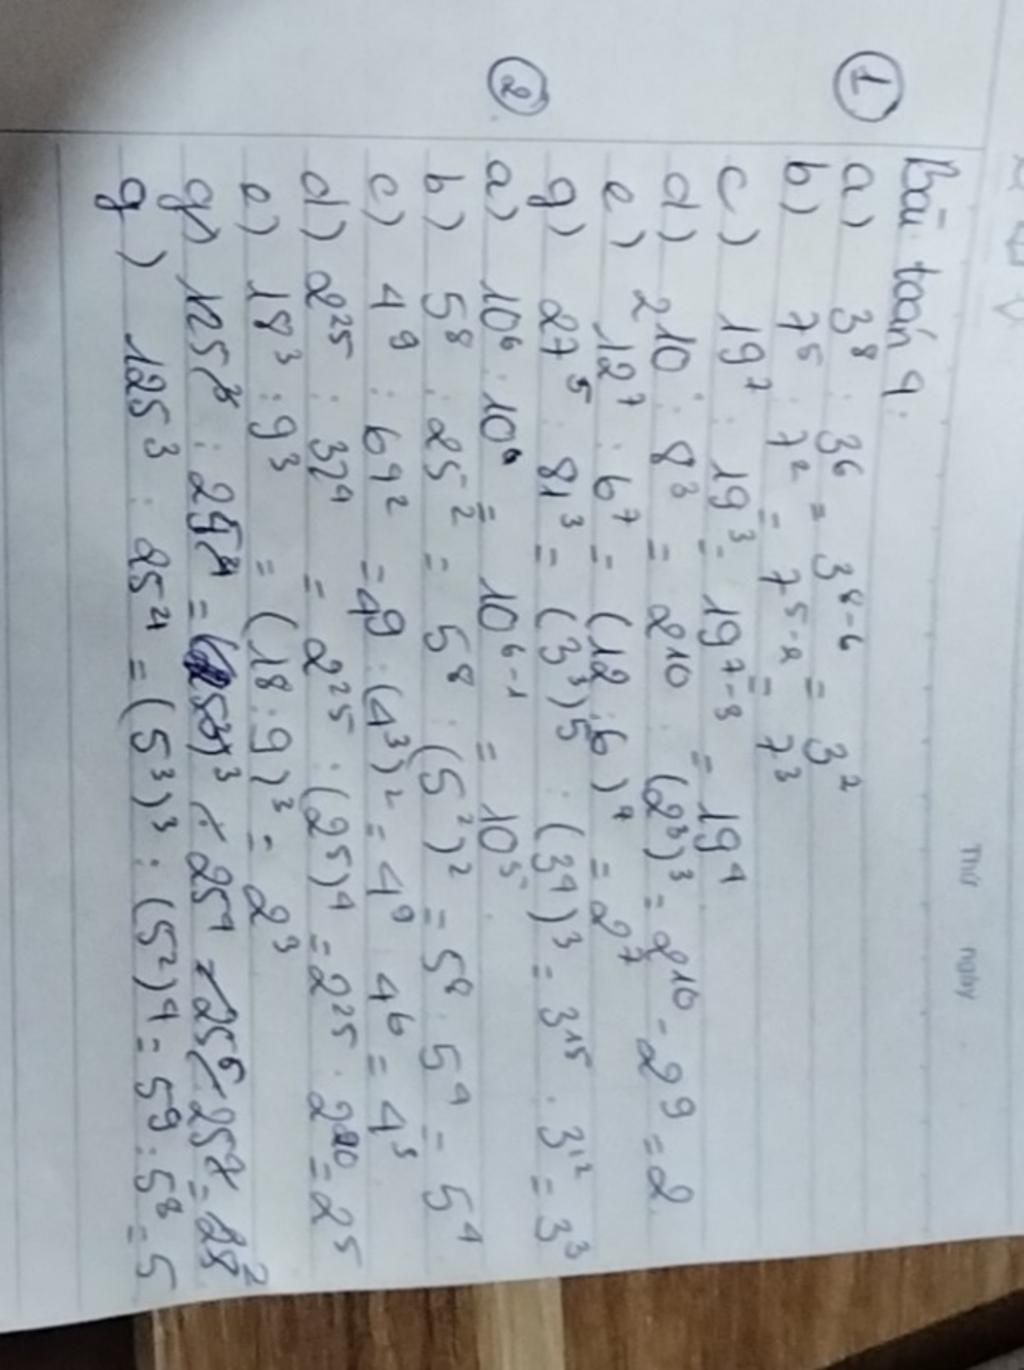 Thứ ngày
Bài toán 9:
① a) 3⁸ : 3⁶ = 3⁸⁻⁶ = 3²
b) 7⁵ : 7² = 7⁵⁻² = 7³
c) 19⁷ : 19³ = 19⁷⁻³ = 19⁴
d) 2¹⁰ : 8³ = 2¹⁰ : (2³)³ = 2¹⁰ - 2⁹ = 2
e) 12⁷ : 6⁷ = (12 : 6)⁷ = 2⁷
g) 27⁵ : 81³ = (3³)⁵ : (3⁴)³ = 3¹⁵ : 3¹² = 3³
② a) 10⁶ : 10 = 10⁶⁻¹ = 10⁵
b) 5⁸ : 25² = 5⁸ : (5²)² = 5⁸ : 5⁴ = 5⁴
c) 4⁹ : 64² = 4⁹ : (4³)² = 4⁹ : 4⁶ = 4³
d) 2²⁵ : 32⁴ = 2²⁵ : (2⁵)⁴ = 2²⁵ : 2²⁰ = 2⁵
e) 18³ : 9³ = (18 : 9)³ = 2³
g) 125³ : 25⁴ = (5³)³ : (5²)⁴ = 5⁹ : 5⁸ = 5